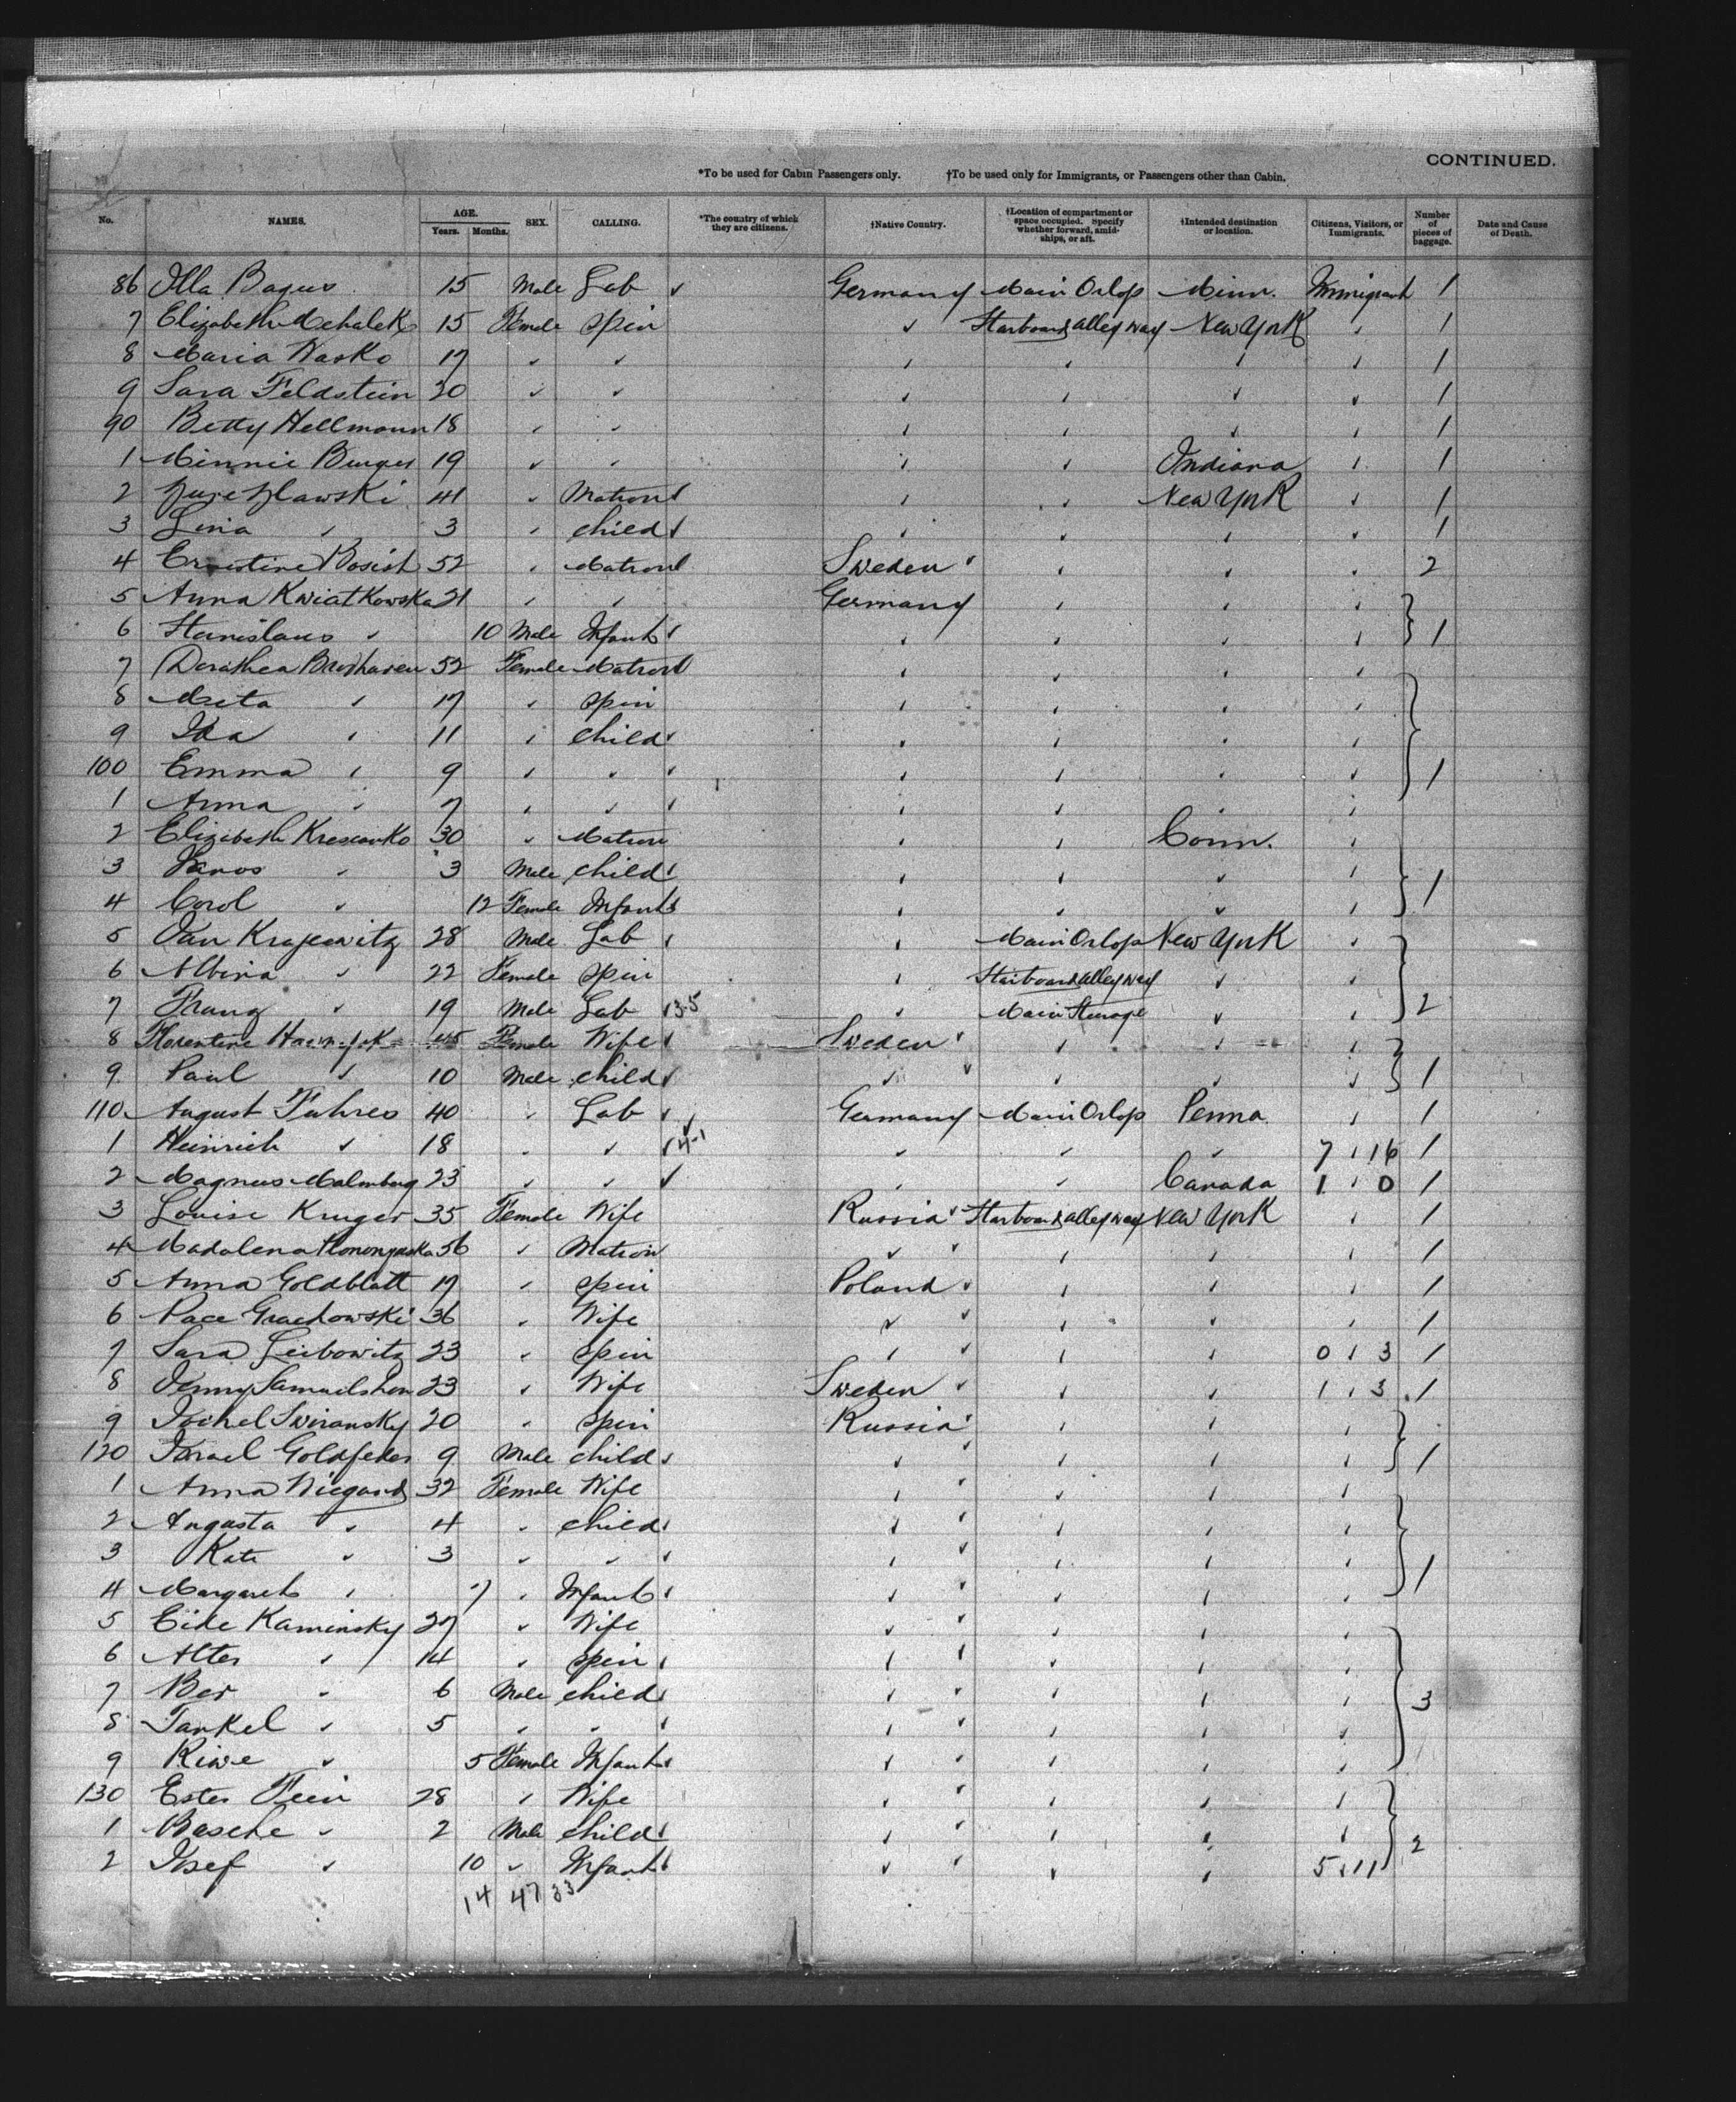 CONTINUED.
*To be used for Cabin Passengers only. †To be used only for Immigrants, or Passengers other than Cabin.
No. NAMES. AGE. Years. Months. SEX. CALLING. *The country of which they are citizens. †Native Country. †Location of compartment or space occupied. Specify whether forward, amidships, or aft. †Intended destination or location. Citizens, Visitors, or Immigrants. Number of pieces of baggage. Date and Cause of Death.
86 Illa Bagus 15 Male Lab ✓ Germany Main Orlop Minn. Immigrant 1
7 Elizabeth Mehalek 15 Female Spin ✓ Starboard alley way New York ✓ 1
8 Maria Wasko 17 ✓ ✓ ✓ ✓ ✓ ✓ 1
9 Sara Feldstein 20 ✓ ✓ ✓ ✓ ✓ ✓ 1
90 Betty Hellmann 18 ✓ ✓ ✓ ✓ ✓ ✓ 1
1 Minnie Burger 19 ✓ ✓ ✓ ✓ Indiana ✓ 1
2 41 ✓ Matron ✓ ✓ ✓ New York ✓ 1
3 Lina ✓ 3 ✓ Child ✓ ✓ ✓ ✓ ✓ 1
4 Ernestine Bosish 52 ✓ Matron ✓ Sweden ✓ ✓ ✓ ✓ 2
5 Anna Kwiatkowska 21 ✓ ✓ Germany ✓ ✓ ✓
6 Stanislaus ✓ 10 Male Infant ✓ ✓ ✓ ✓ ✓ } 1
7 Dorathea 52 Female Matron ✓ ✓ ✓ ✓ ✓
8 Meta ✓ 17 ✓ Spin ✓ ✓ ✓ ✓
9 Ida ✓ 11 ✓ Child ✓ ✓ ✓ ✓ ✓
100 Emma ✓ 9 ✓ ✓ ✓ ✓ ✓ ✓ ✓ } 1
1 Anna ✓ 7 ✓ ✓ ✓ ✓ ✓ ✓ ✓
2 Elizabeth Krescanko 30 ✓ Matron ✓ ✓ Conn. ✓
3 Janos ✓ 3 Male Child ✓ ✓ ✓ ✓ ✓
4 Corol ✓ 12 Female Infant ✓ ✓ ✓ ✓ ✓ } 1
5 Jan Krajewitz 28 Male Lab ✓ ✓ Main Orlop New York ✓
6 Albina ✓ 22 Female Spin ✓ Starboard alley way ✓ ✓
7 Franz ✓ 19 Male Lab ✓ 3-5 ✓ Main Steerage ✓ ✓ } 2
8 Florentine 45 Female Wife ✓ Sweden ✓ ✓ ✓ ✓
9 Paul ✓ 10 Male Child ✓ ✓ ✓ ✓ ✓ ✓ } 1
110 August Fuhres 40 ✓ Lab ✓ Germany Main Orlop Penna ✓ 1
1 Heinrich ✓ 18 ✓ ✓ ✓ 4-1 ✓ ✓ ✓ 7 ✓ 16 1
2 Magnus Malmberg 23 ✓ ✓ ✓ ✓ ✓ Canada 1 ✓ 0 1
3 Louise Kruger 35 Female Wife Russia ✓ Starboard alley way New York ✓ 1
4 Madalena 56 ✓ Matron ✓ ✓ ✓ ✓ ✓ 1
5 Anna Goldblatt 17 ✓ Spin Poland ✓ ✓ ✓ ✓ 1
6 Pace Grachowski 36 ✓ Wife ✓ ✓ ✓ ✓ ✓ 1
7 Sara Leibowitz 23 ✓ Spin ✓ ✓ ✓ ✓ 0 ✓ 3 1
8 Jenny Samuelshon 23 ✓ Wife Sweden ✓ ✓ ✓ 1 ✓ 3 1
9 Jochel Swiransky 20 ✓ Spin Russia ✓ ✓ ✓ ✓
120 Israel Goldfeder 9 Male Child ✓ ✓ ✓ ✓ ✓ ✓ } 1
1 Anna Wiegand 32 Female Wife ✓ ✓ ✓ ✓ ✓
2 Augusta ✓ 4 ✓ Child ✓ ✓ ✓ ✓ ✓ ✓
3 Kate ✓ 3 ✓ ✓ ✓ ✓ ✓ ✓ ✓ ✓ } 1
4 Margareth ✓ 7 ✓ Infant ✓ ✓ ✓ ✓ ✓ ✓
5 Eide Kaminsky 27 ✓ Wife ✓ ✓ ✓ ✓ ✓
6 Alter ✓ 14 ✓ Spin ✓ ✓ ✓ ✓ ✓ ✓
7 Ber ✓ 6 Male Child ✓ ✓ ✓ ✓ ✓ ✓ } 3
8 Jankel ✓ 5 ✓ ✓ ✓ ✓ ✓ ✓ ✓ ✓
9 Riwe ✓ 5 Female Infant ✓ ✓ ✓ ✓ ✓ ✓
130 Ester Fein 28 ✓ Wife ✓ ✓ ✓ ✓ ✓
1 Basche ✓ 2 Male Child ✓ ✓ ✓ ✓ ✓ ✓ } 2
2 Josef ✓ 10 ✓ Infant ✓ ✓ ✓ ✓ ✓ 5 ✓ 11
14 47 33